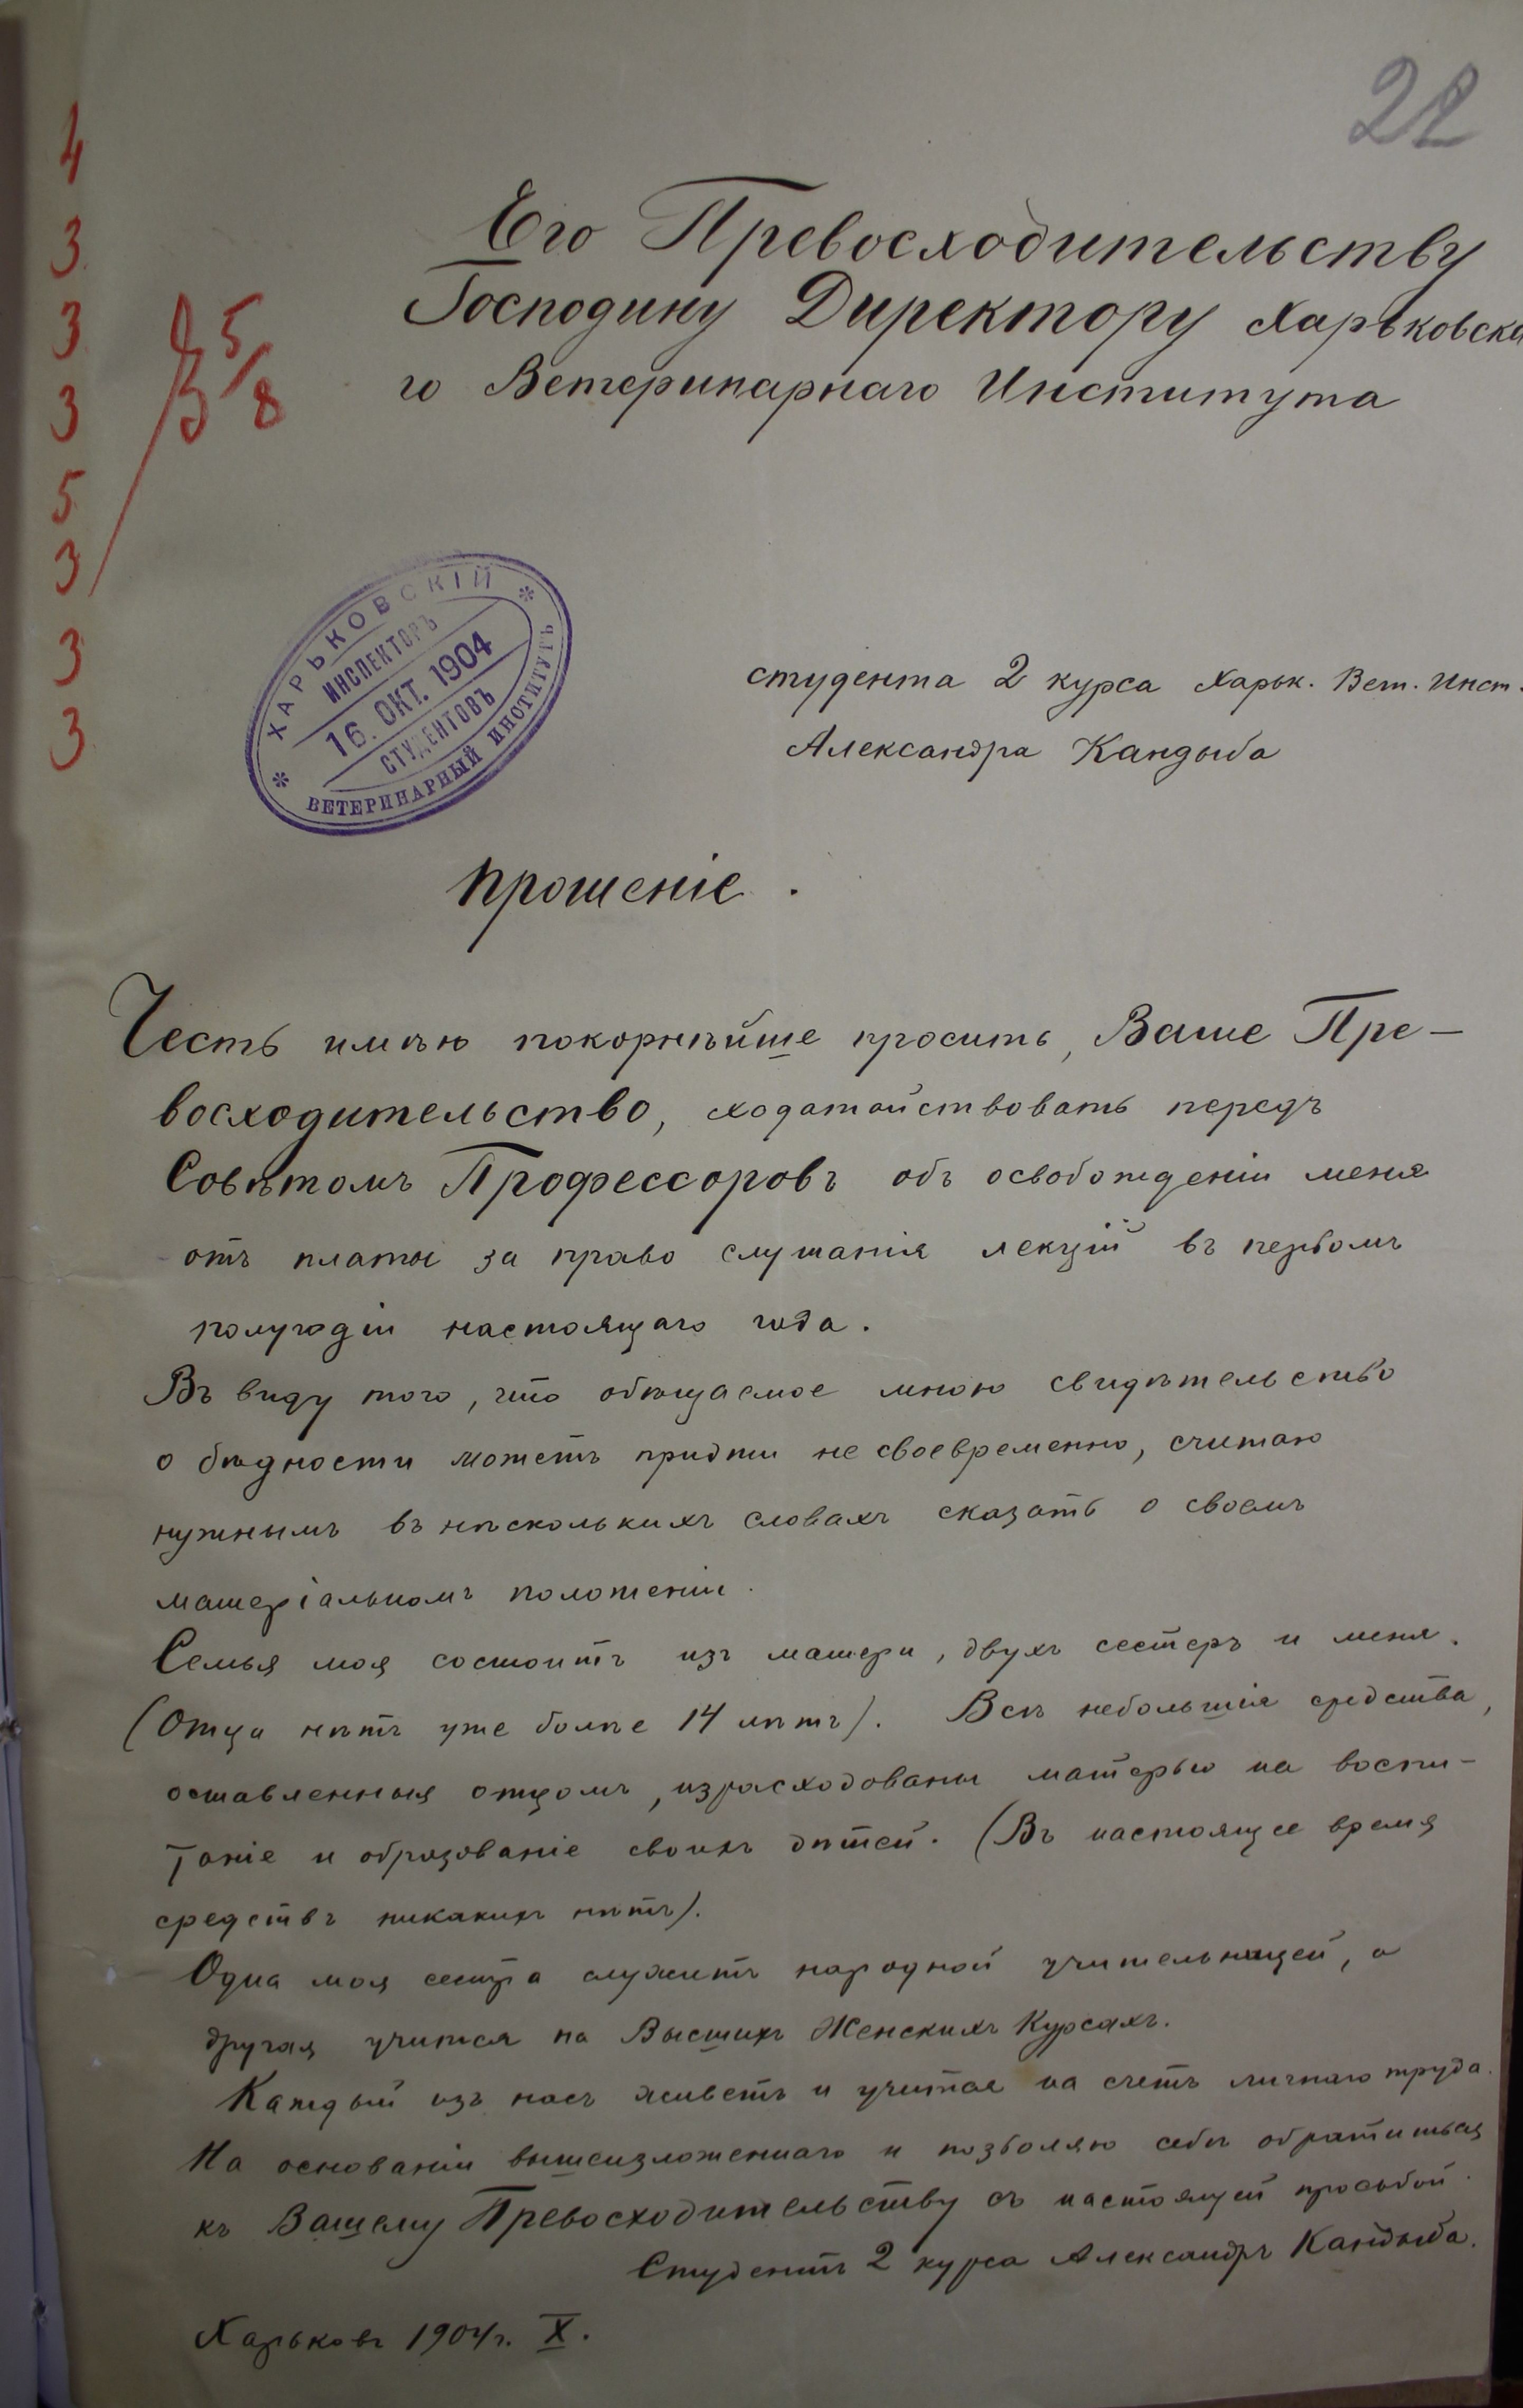 22
4
3
3
3
5
3
3
3
3 5/8
Его Превосходительству
Господину Директору Харьковска
го Ветеринарнаго Института
ХАРЬКОВСКІЙ
ИНСПЕКТОРЪ
16. ОКТ. 1904
СТУДЕНТОВЪ
ВЕТЕРИНАРНЫЙ ИНСТИТУТЪ
студента 2 курса Харьк. Вет. Инст.
Александра Кандыба
Прошеніе.
Честь имѣю покорнѣйше просить, Ваше Пре-
восходительство, ходатайствовать передъ
Совѣтомъ Профессоровъ объ освобожденіи меня
отъ платы за право слушанія лекцій въ первомъ
полугодіи настоящаго года.
Въ виду того, что обѣщаемое мною свидѣтельство
о бѣдности можетъ придти не своевременно, считаю
нужнымъ въ нѣсколькихъ словахъ сказать о своемъ
матеріальномъ положеніи.
Семья моя состоитъ изъ матери, двухъ сестеръ и меня.
(Отца нѣтъ уже болѣе 14 лѣтъ). Всѣ небольшія средства,
оставленныя отцомъ, израсходованы матерью на воспи-
таніе и образованіе своихъ дѣтей. (Въ настоящее время
средствъ никакихъ нѣтъ).
Одна моя сестра служитъ народной учительницей, а
другая учится на Высшихъ Женскихъ Курсахъ.
Каждый изъ насъ живетъ и учится на счетъ личнаго труда.
На основаніи вышеизложеннаго и позволяю себѣ обратиться
къ Вашему Превосходительству съ настоящей просьбой.
Студентъ 2 курса Александръ Кандыба.
Харьковъ 1904 г. X.